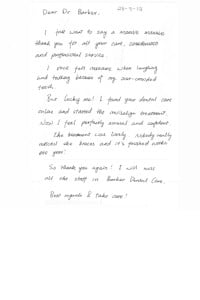 Dear Dr. Barker, 23-3-12
I just want to say a massive massive
thank you for all your care, consideration
and professional service.
I once felt insecure when laughing
and talking because of my over-crowded
teeth.
But lucky me! I found your dental care
online and started the invisalign treatment.
Now I feel perfectly normal and confident.
The treatment was lovely. Nobody really
noticed the braces and it's finished within
one year!
So thank you again! I will miss
all the staff in Barker Dental Care.
Best regards & take care!